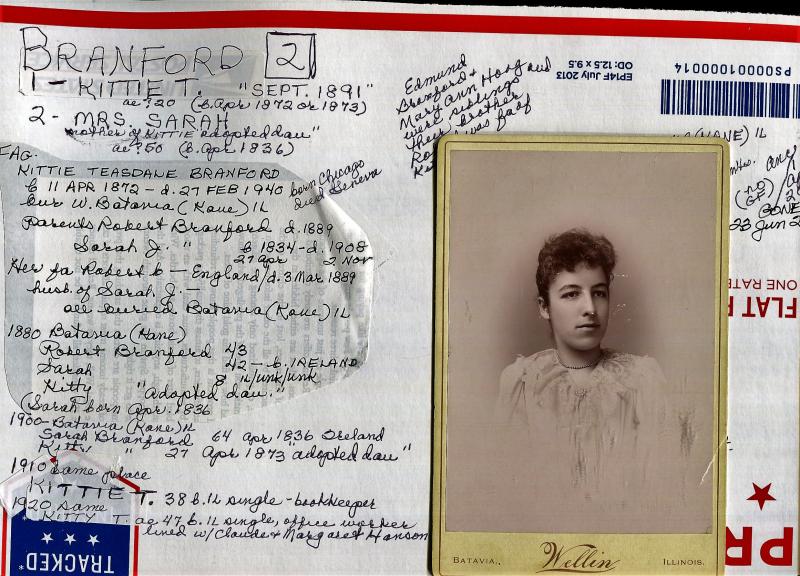 BRANFORD 2
1 - KITTIE T. "SEPT. 1891"
ae ?20 (b. Apr 1872 or 1873)
2 - MRS. SARAH
mother of KITTIE adopted dau"
ae ?50 (b. Apr 1836)
FAG.
KITTIE TEASDALE BRANFORD
b 11 APR 1872 - d. 27 FEB 1940 born Chicago
died Geneva
bur W. Batavia (Kane) IL
Parents Robert Branford d. 1889
Sarah J. " b 1834 - d. 1908
27 apr 2 Nov
Her fa Robert b - England/d. 3 Mar 1889
husb. of Sarah J. -
all buried Batavia (Kane) IL
1880 Batavia (Kane)
Robert Branford 43
Sarah 42 - b. IRELAND
Kitty 8 IL/unk/unk
"Adopted dau."
(Sarah born Apr. 1836
1900 - Batavia (Kane) IL
Sarah Branford 64 Apr 1836 Ireland
Kitty " 27 Apr 1873 "adopted dau"
1910 same place
KITTIE T. 38 b. IL single - bookkeeper
1920 same
KITTY T. ae 47 b. IL single, office worker
lived w/ Claude + Margaret Hanson
TRACKED*
Edmund
Branford +
Mary Ann Hoag and
were siblings
their brother
was fa of
EP14F July 2013
OD: 12.5 x 9.5
PS00001000014
(KANE) IL
23 Jun
ONE RATE
FLAT
PR
BATAVIA, Wellin ILLINOIS.